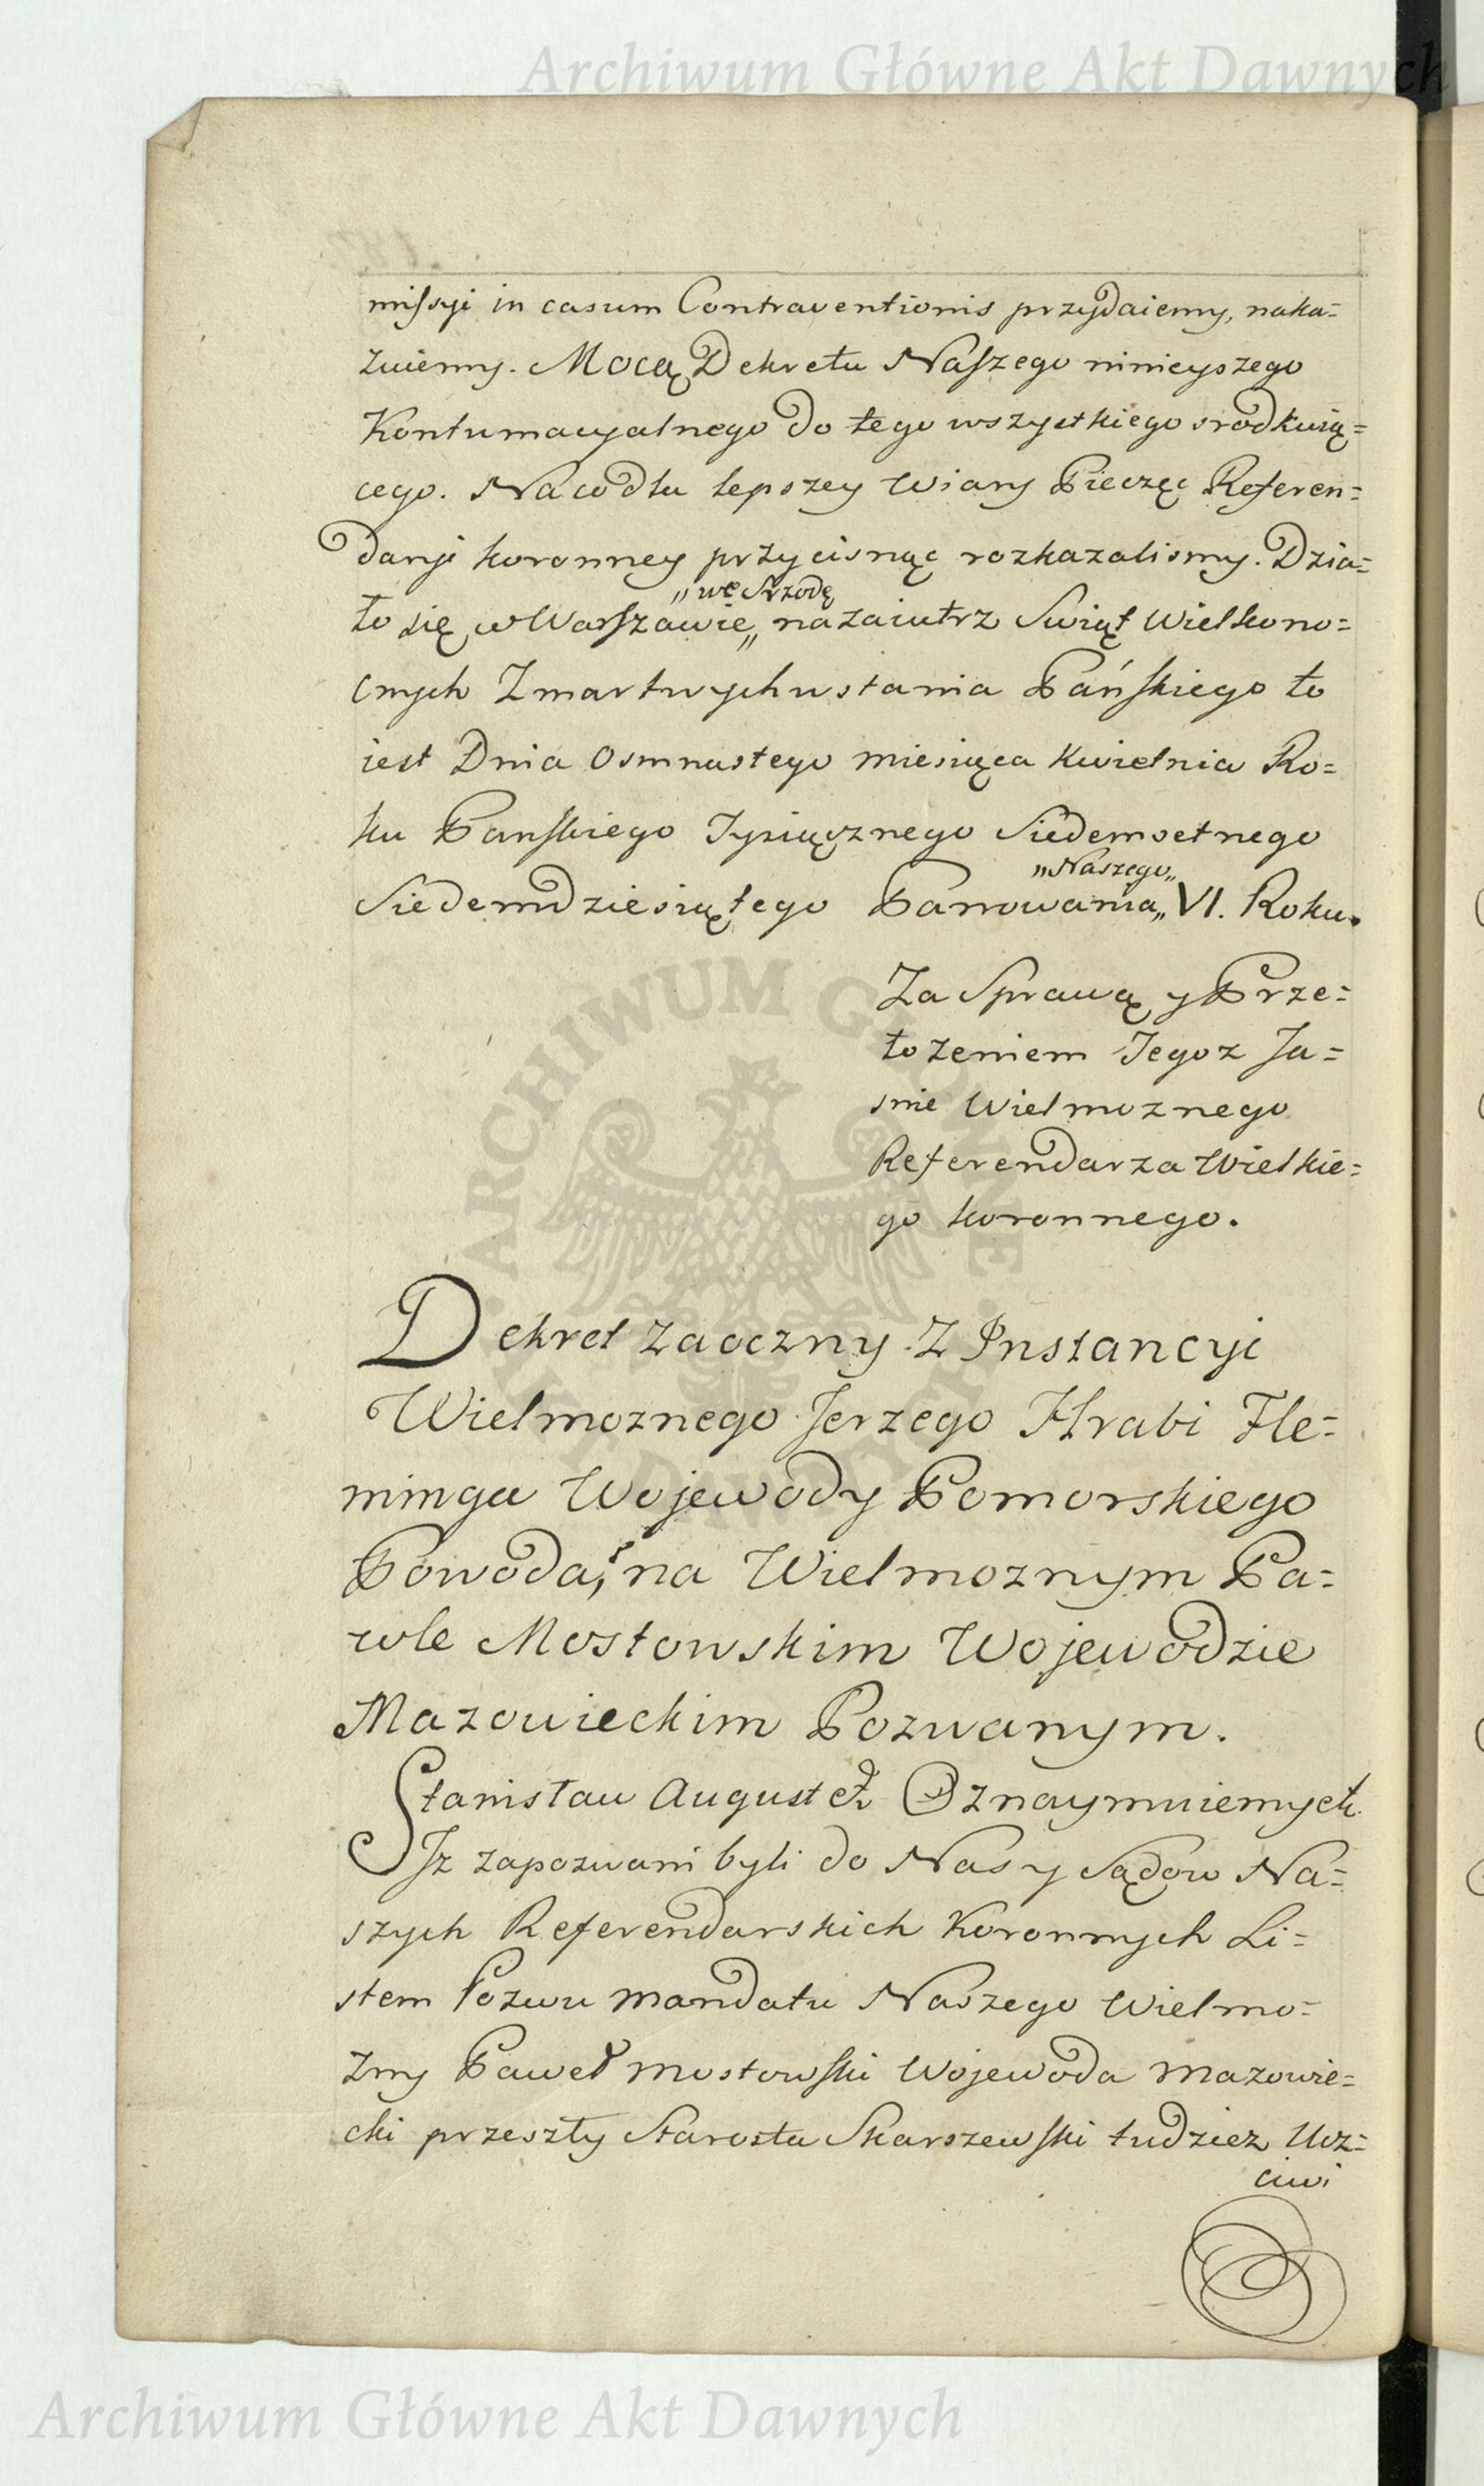 Archiwum Główne Akt Dawnych
missyi in casum Contraventionis przydaiemy, naka=
zuiemy. Mocą Dekretu Naszego ninieyszego
Kontumacyalnego do tego wszystkiego srodkuią=
cego. Na co dla lepszey Wiary Pieczęc Referen=
daryi koronney przycisnąc rozkazalismy. Dzia=
„we Srzodę
ło się w Warszawie„ nazaiutrz Swiąt Wielkono=
cnych Zmartwychwstania Pańskiego to
iest Dnia Osmnastego miesiąca Kwietnia Ro=
ku Panskiego Tysiącznego Siedemsetnego
„Naszego„
Siedemdziesiątego Panowania„ VI. Roku.
Za Sprawą y Prze=
łozeniem Jegoz Ja=
snie Wielmoznego
Referendarza Wielkie=
go koronnego.
Dekret zaoczny Z Instancyi
Wielmoznego Jerzego Hrabi Fle=
minga Wojewody Pomorskiego
Powoda, na Wielmoznym Pa=
wle Mostowskim Wojewodzie
Mazowieckim Pozwanym.
Stanisław August &. Oznaymuiemy &.
Jz zapozwani byli do Nas y Sądow Na=
szych Referendarskich Koronnych Li=
stem Pozwu mandatu Naszego Wielmo=
zny Paweł Mostowski Wojewoda Mazowie=
cki przeszły Starosta Skarszewski tudziez Ucz=
ciwi
ARCHIWUM GŁÓWNE AKT DAWNYCH
Archiwum Główne Akt Dawnych